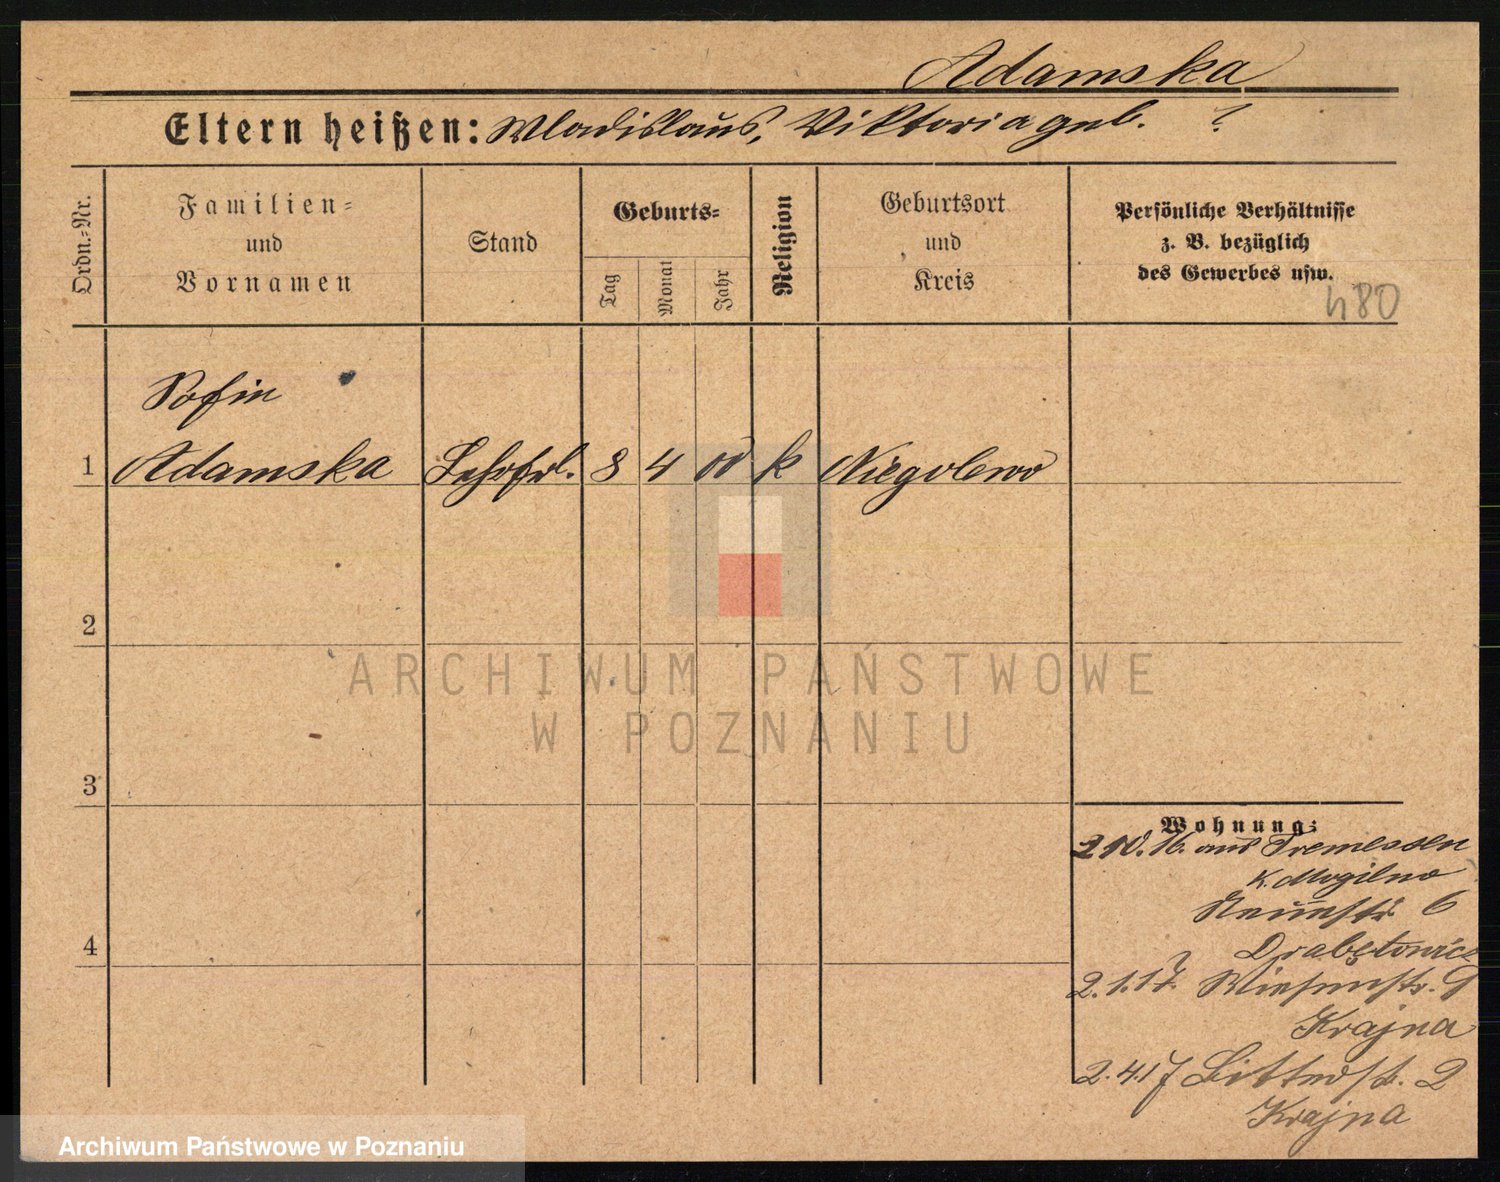 Adamska
Eltern heißen: Wladislaus, Viktoria geb. ?
Ordn.-Nr.
Familien-
und
Vornamen
Stand
Geburts-
Tag
Monat
Jahr
Religion
Geburtsort
und
Kreis
Persönliche Verhältnisse
z. B. bezüglich
des Gewerbes usw.
480
Sofie
1 Adamska Lehrfrl. 8 4 00 k Niegolewo
2
ARCHIWUM PAŃSTWOWE
W POZNANIU
3
Wohnung:
2.10.16. aus Tremessen
K. Mogilno
6
4
2.1.17. Wiesenstr. 9
Krajna
2.4.17 Bitterst. 2
Krajna
Archiwum Państwowe w Poznaniu